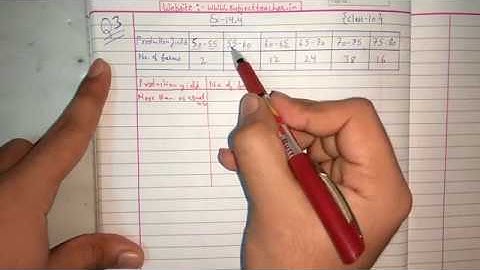 Website:- www.subjectteacher.in
Ex-14.4 {Class-10}
Q3
Production yield 50-55 55-60 60-65 65-70 70-75 75-80
No. of farms 2 12 24 38 16
Production yield No. of
More than or equal